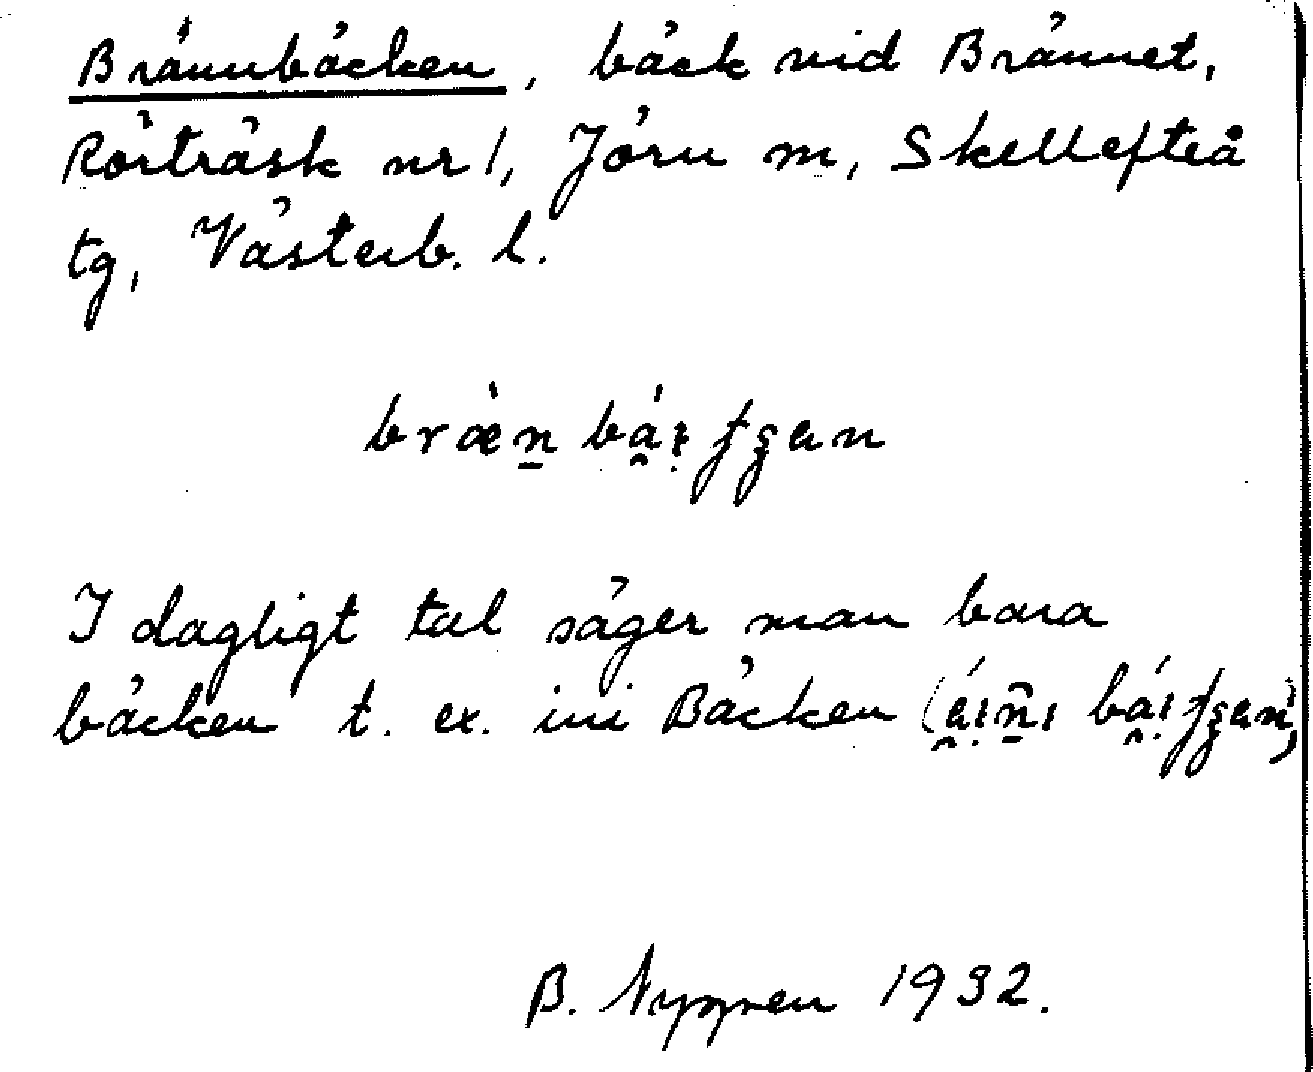 Brännbäcken, bäck vid Brännet,
Rörträsk nr 1, Jörn m, Skellefteå
tg, Västerb. l.
I dagligt tal säger man bara
bäcken t. ex. ini Bäcken
B. Nygren 1932.